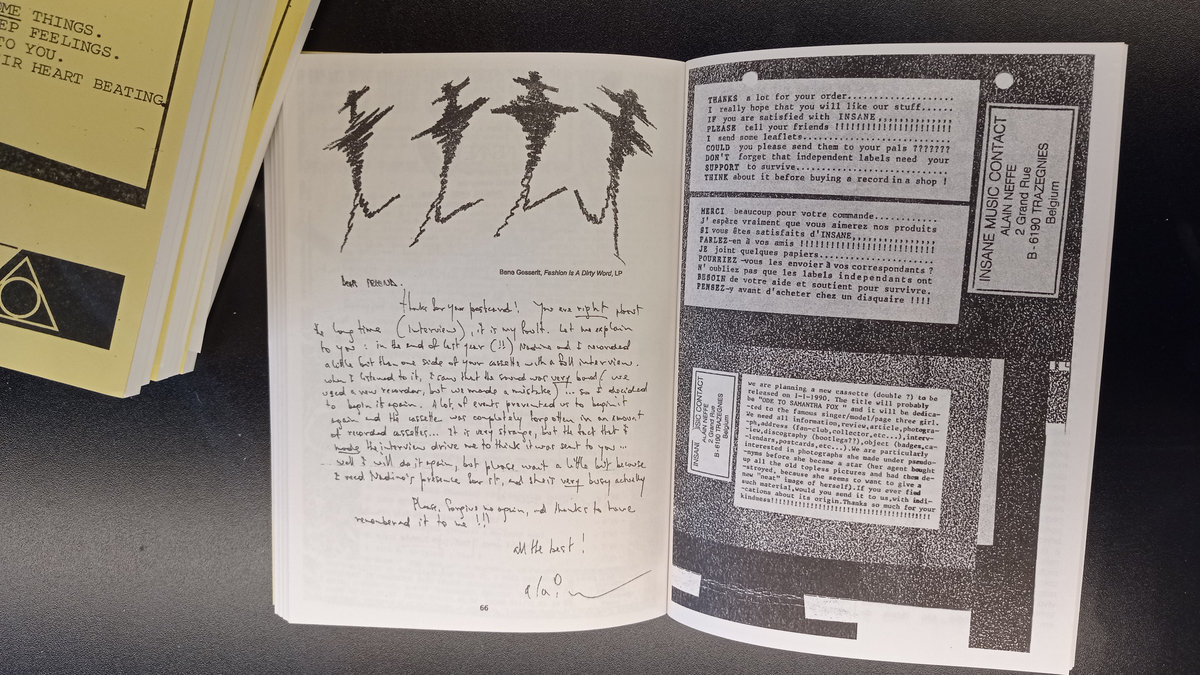 ME THINGS.
EP FEELINGS.
TO YOU.
IR HEART BEATING
Bene Gesserit, Fashion Is A Dirty Word, LP
Dear FRIEND.
Thanks for your postcard! You are right about
the long time (interview), it is my fault. Let me explain
to you: in the end of last year (!!) Nadine and I recorded
a little bit than one side of your cassette with a full interview.
when I listened to it, I saw that the sound was very bad (we
used a new recorder, but we made a mistake)... so I decided
to begin it again. A lot of events prevented us to begin it
again and the cassette was completely forgotten in an amount
of recorded cassettes... It is very strange, but the fact that I
made the interview drive me to think it was sent to you...
well I will do it again, but please wait a little bit because
I need Nadine's presence for it, and she is very busy actually
Please, forgive me again, and thanks to have
remembered it to me !!!
all the best!
alain
66
THANKS a lot for your order...................
I really hope that you will like our stuff......
IF you are satisfied with INSANE,,,,,,,,,,,,,
PLEASE tell your friends !!!!!!!!!!!!!!!!!!!!!!
I send some leaflets......................
COULD you please send them to your pals ???????
DON'T forget that independent labels need your
SUPPORT to survive......................
THINK about it before buying a record in a shop !
MERCI beaucoup pour votre commande............
J'espère vraiment que vous aimerez nos produits
SI vous êtes satisfaits d'INSANE,,,,,,,,,,,,,,,
PARLEZ-en à vos amis !!!!!!!!!!!!!!!!!!!!!!!!
JE joint quelques papiers.................
POURRIEZ-vous les envoier à vos correspondants ?
N'oubliez pas que les labels indépendants ont
BESOIN de votre aide et soutient pour survivre.
PENSEZ-y avant d'acheter chez un disquaire !!!!
INSANE MUSIC CONTACT
ALAIN NEFFE
2 Grand Rue
B-6190 TRAZEGNIES
Belgium
INSANE MUSIC CONTACT
ALAIN NEFFE
2 Grand Rue
B-6190 TRAZEGNIES
Belgium
we are planning a new cassette (double ?) to be
released on 1-1-1990. The title will probably
be "ODE TO SAMANTRA FOX " and it will be dedica-
-ted to the famous singer/model/page three girl.
We need all information,review,article,photogra-
-ph,address (fan-club,collector,etc...),interv-
-iew,discography (bootlegs??),object (badges,ca-
-lendars,postcards,etc...).We are particularly
interested in photographs she made under pseudo-
-nyms before she became a star (her agent bought
up all the old topless pictures and had thom de-
-stroyed, because she seems to want to give a
new "neat" image of herself).if you ever find
such material,would you send it to us,with indi-
-cations about its origin.Thanks so much for your
kindness!!!!!!!!!!!!!!!!!!!!!!!!!!!!!!!!!!!!!!